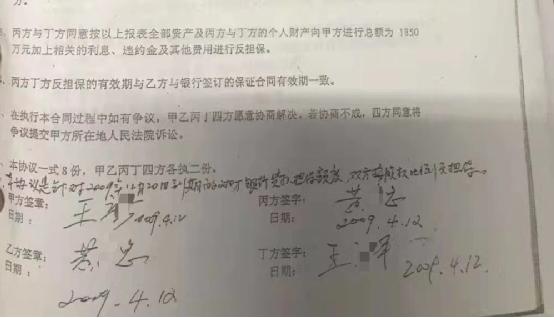 方。
丙方与丁方同意按以上报表全部资产及丙方与丁方的个人财产向甲方进行总额为 1850
万元加上相关的利息、违约金及其他费用进行反担保。
、丙方丁方反担保的有效期与乙方与银行签订的保证合同有效期一致。
、在执行本合同过程中如有争议，甲乙丙丁四方愿意协商解决。若协商不成，四方同意将
争议提交甲方所在地人民法院诉讼。
、本协议一式 8 份，甲乙丙丁四方各执二份。
本协议是针对2009年12月20日到期的 担保额度，双方按股权比例反担保。
甲方签章： 王
日期： 2009.4.12
丙方签字： 黄
日期： 2009.4.12
乙方签章： 黄
日期：
2009.4.12
丁方签字： 王 军
日期： 2009.4.12.